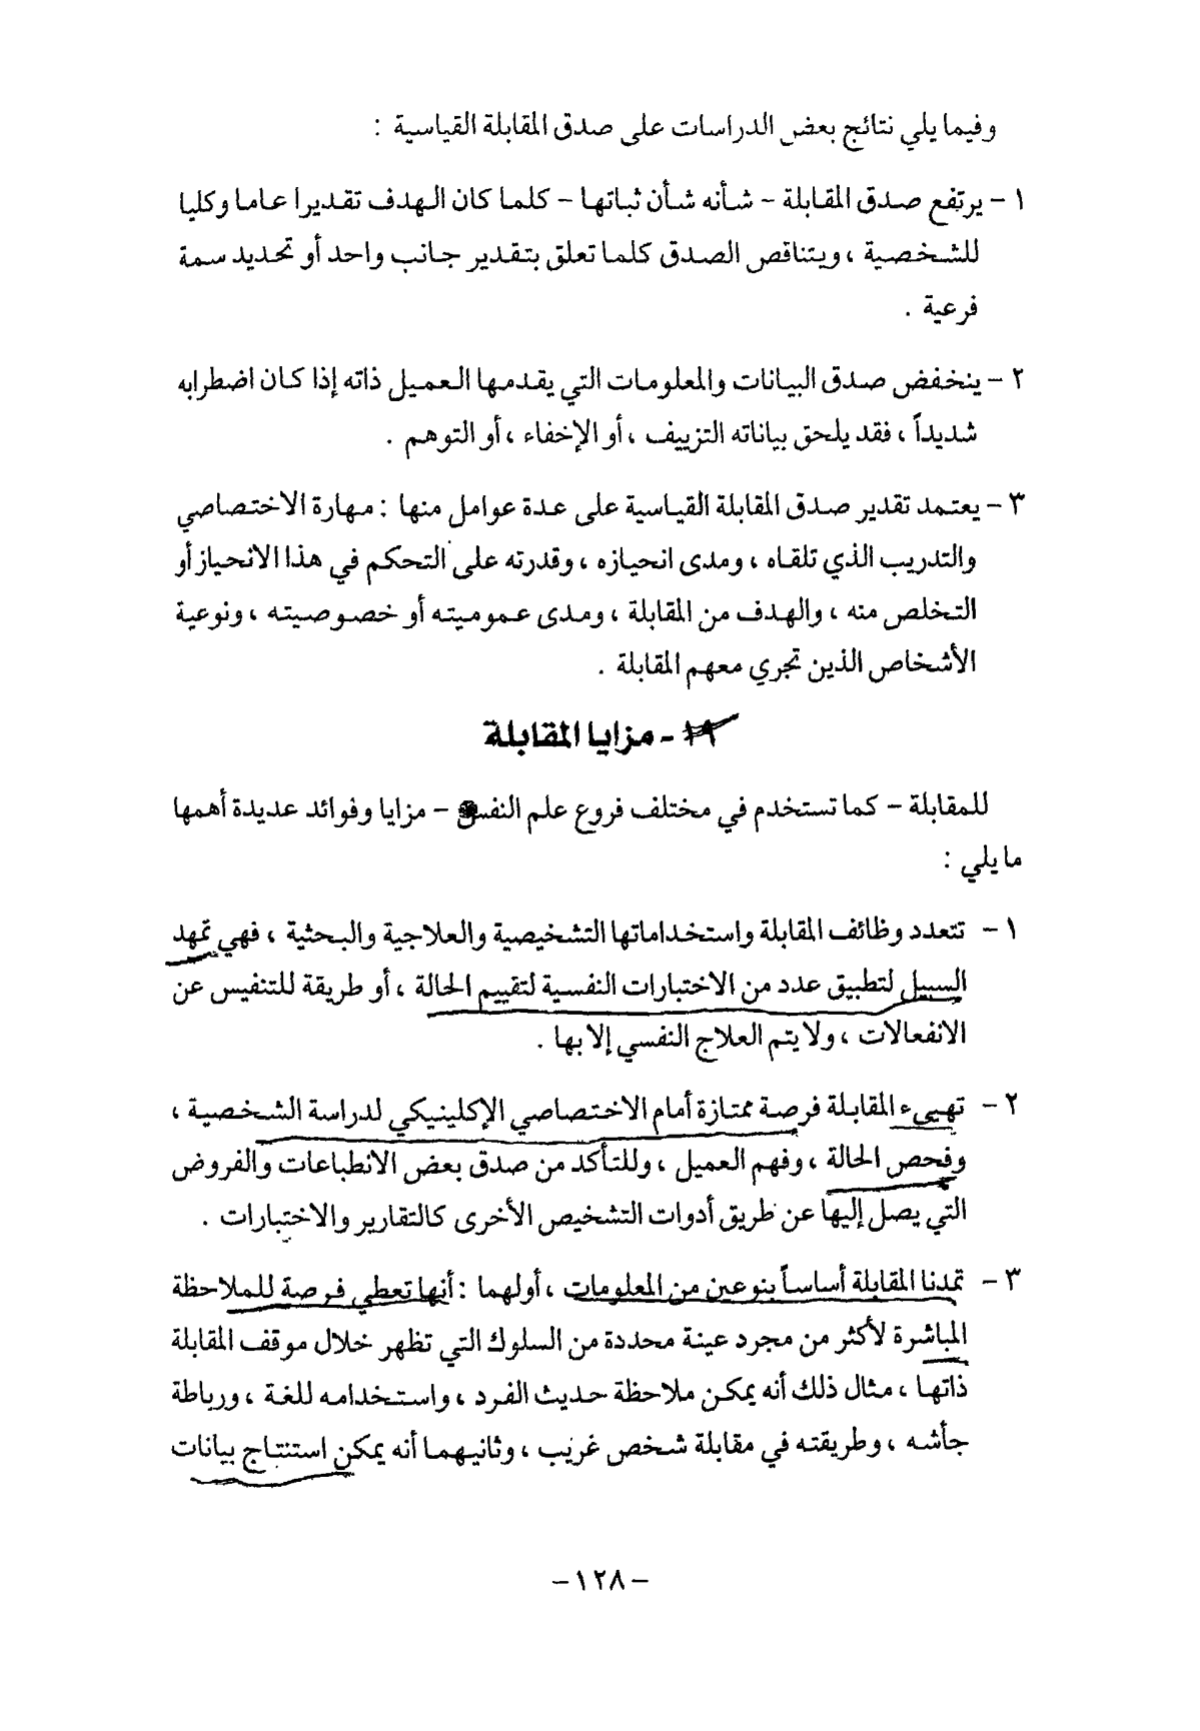 وفيما يلي نتائج بعض الدراسات على صدق المقابلة القياسية :
١ - يرتفع صدق المقابلة - شأنه شأن ثباتها - كلما كان الهدف تقديرا عاما وكليا
للشخصية ، ويتناقص الصدق كلما تعلق بتقدير جانب واحد أو تحديد سمة
فرعية .
٢ - ينخفض صدق البيانات والمعلومات التي يقدمها العميل ذاته إذا كان اضطرابه
شديداً ، فقد يلحق بياناته التزييف ، أو الإخفاء ، أو التوهم .
٣ - يعتمد تقدير صدق المقابلة القياسية على عدة عوامل منها : مهارة الاختصاصي
والتدريب الذي تلقاه ، ومدى انحيازه ، وقدرته على التحكم في هذا الانحياز أو
التخلص منه ، والهدف من المقابلة ، ومدى عموميته أو خصوصيته ، ونوعية
الأشخاص الذين تجري معهم المقابلة .
١٩ - مزايا المقابلة
للمقابلة - كما تستخدم في مختلف فروع علم النفس - مزايا وفوائد عديدة أهمها
ما يلي :
١ - تتعدد وظائف المقابلة واستخداماتها التشخيصية والعلاجية والبحثية ، فهي تمهد
السبيل لتطبيق عدد من الاختبارات النفسية لتقييم الحالة ، أو طريقة للتنفيس عن
الانفعالات ، ولا يتم العلاج النفسي إلا بها .
٢ - تهييء المقابلة فرصة ممتازة أمام الاختصاصي الإكلينيكي لدراسة الشخصية ،
وفحص الحالة ، وفهم العميل ، وللتأكد من صدق بعض الانطباعات والفروض
التي يصل إليها عن طريق أدوات التشخيص الأخرى كالتقارير والاختبارات .
٣ - تمدنا المقابلة أساساً بنوعين من المعلومات ، أولهما : أنها تعطي فرصة للملاحظة
المباشرة لأكثر من مجرد عينة محددة من السلوك التي تظهر خلال موقف المقابلة
ذاتها ، مثال ذلك أنه يمكن ملاحظة حديث الفرد ، واستخدامه للغة ، ورباطة
جأشه ، وطريقته في مقابلة شخص غريب ، وثانيهما أنه يمكن استنتاج بيانات
- ١٢٨ -